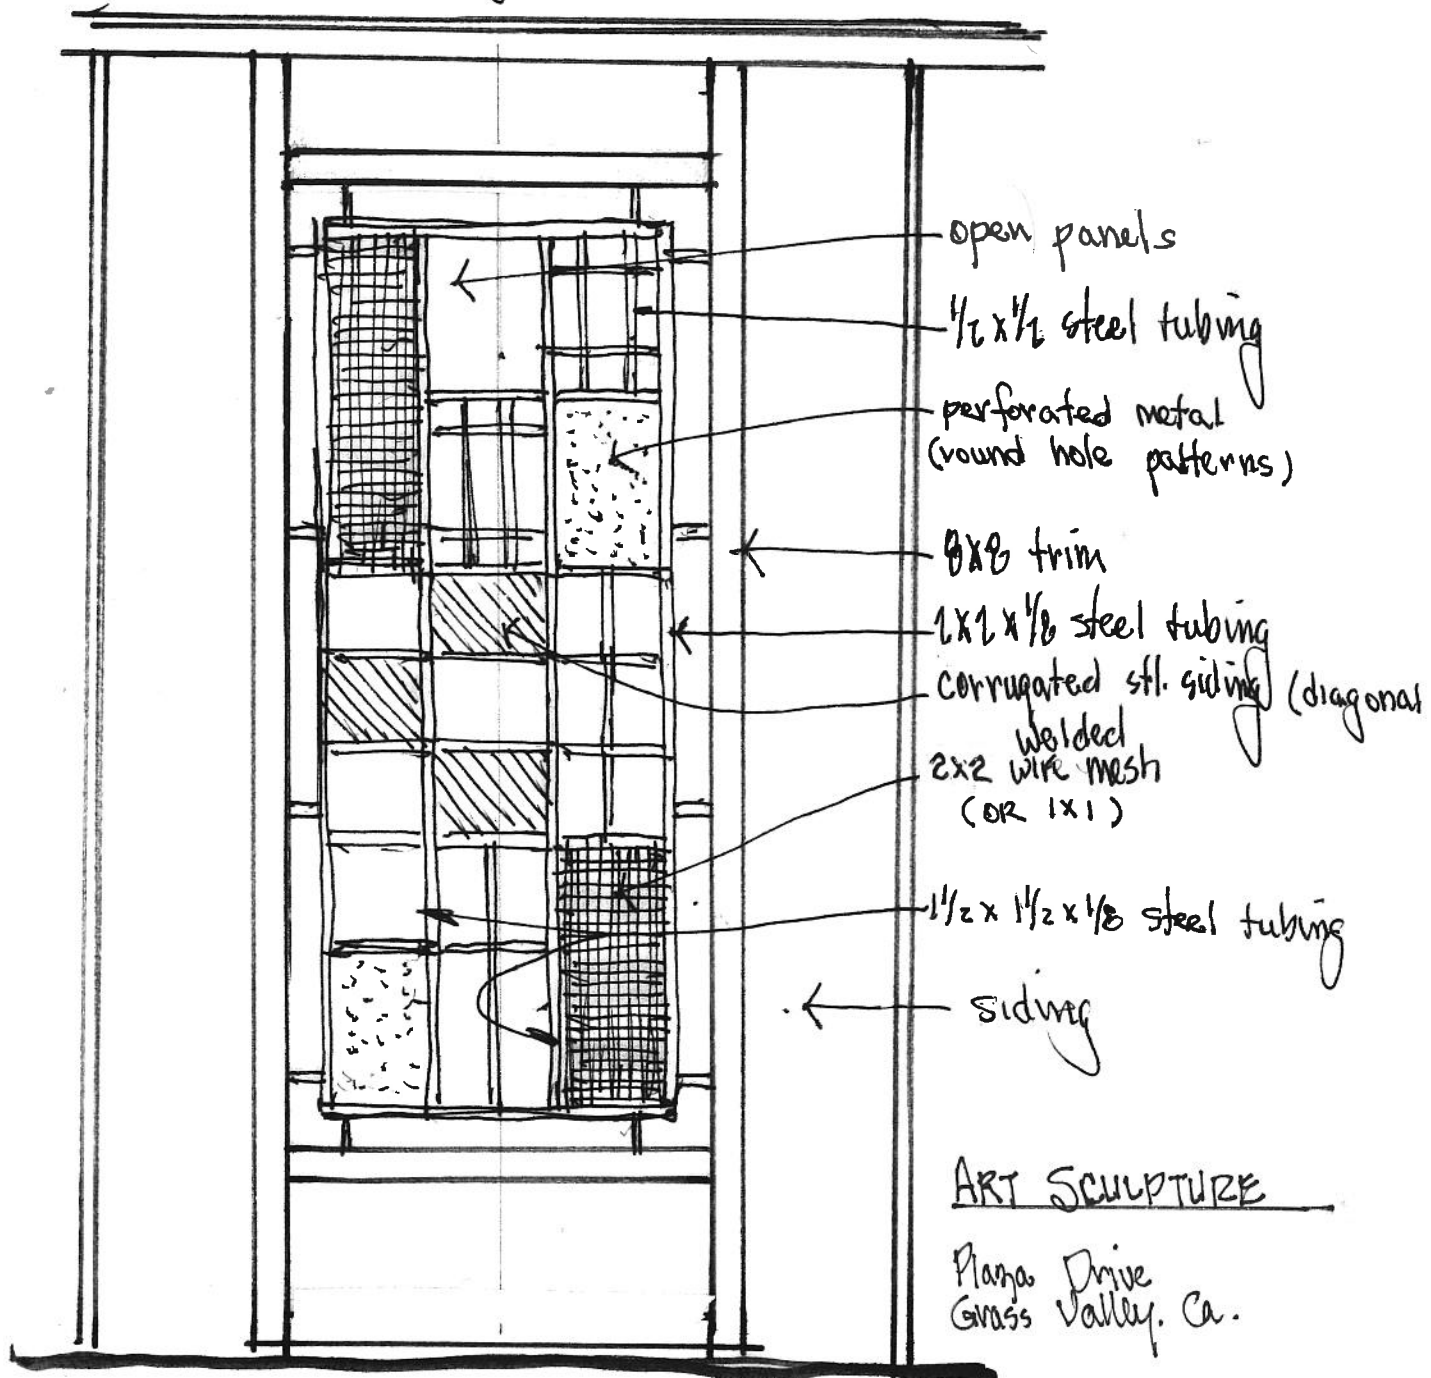 open panels
1/2 x 1/2 steel tubing
perforated metal
(round hole patterns)
8x8 trim
2x2 x 1/8 steel tubing
corrugated stl. siding (diagonal
welded
2x2 wire mesh
(OR 1x1)
1 1/2 x 1 1/2 x 1/8 steel tubing
siding
ART SCULPTURE
Plaza Drive
Grass Valley. Ca.